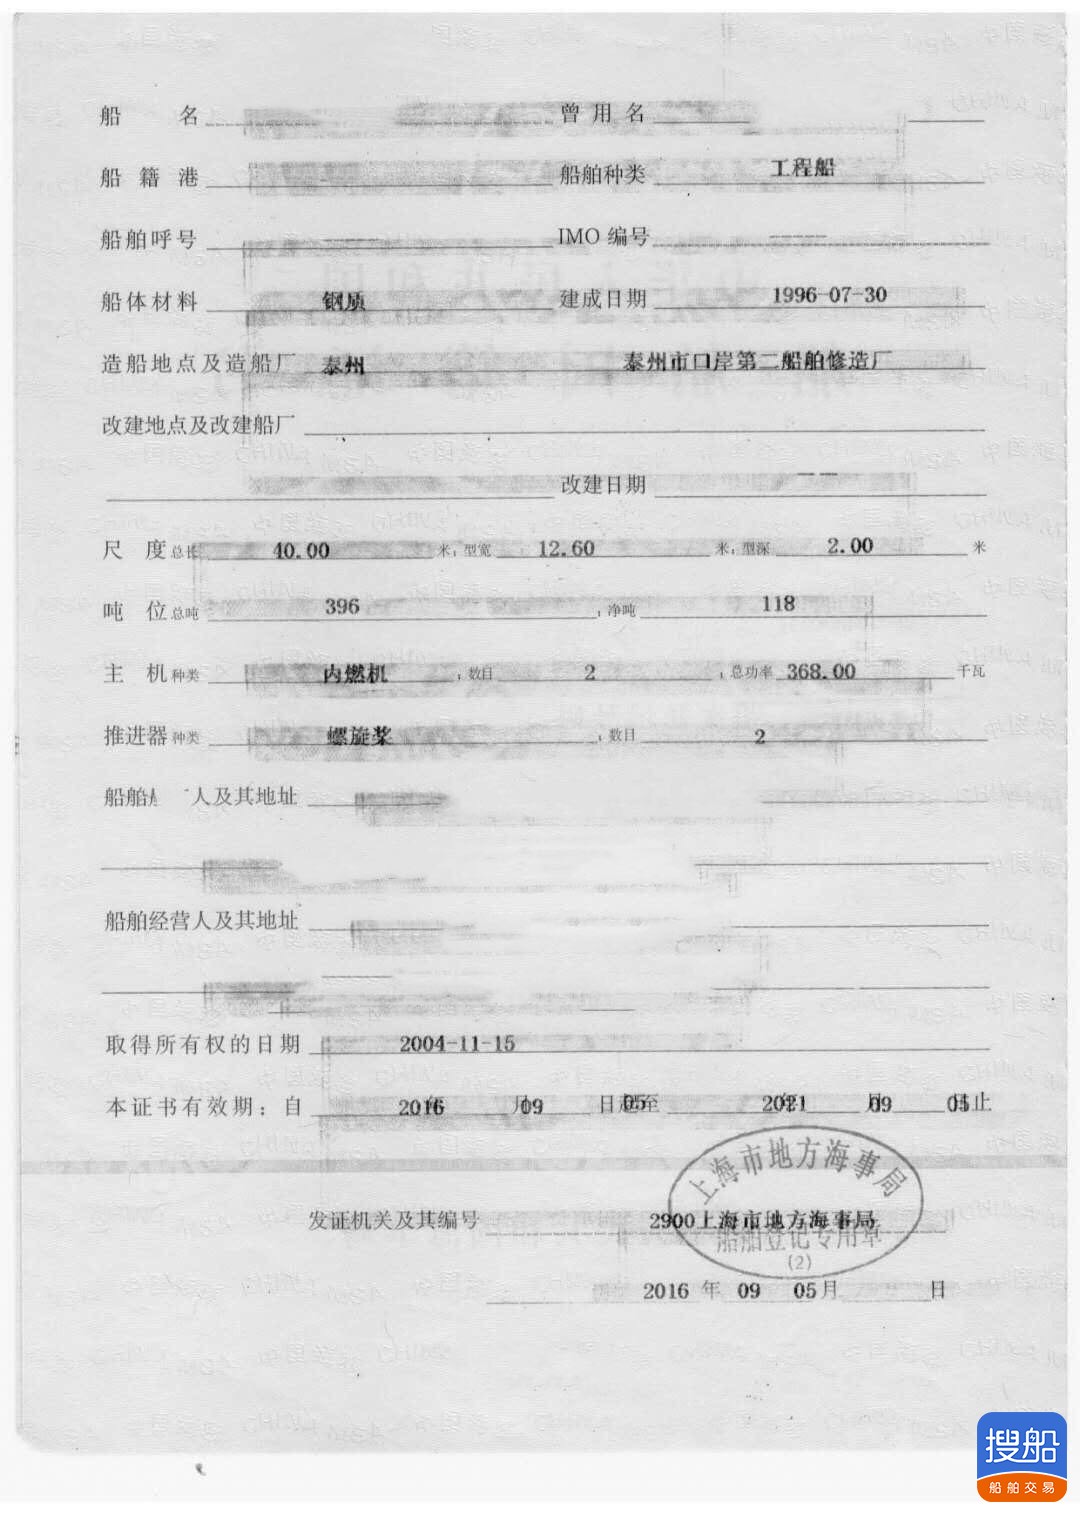 船 名 曾用名
船籍港 船舶种类 工程船
船舶呼号 IMO 编号 -----
船体材料 钢质 建成日期 1996-07-30
造船地点及造船厂 泰州 泰州市口岸第二船舶修造厂
改建地点及改建船厂
改建日期 -- --
尺 度 总长 40.00 米；型宽 12.60 米；型深 2.00 米
吨 位 总吨 396 ；净吨 118
主 机 种类 内燃机 ；数目 2 ；总功率 368.00 千瓦
推进器 种类 螺旋桨 ；数目 2
船舶 人及其地址
船舶经营人及其地址
取得所有权的日期 2004-11-15
本证书有效期：自 2016 年 09 月 05 日起至 2021 年 09 月 05 日止
上海市地方海事局
发证机关及其编号 2900上海市地方海事局
船舶登记专用章
(2)
2016 年 09 05 月 日
搜船
船舶交易